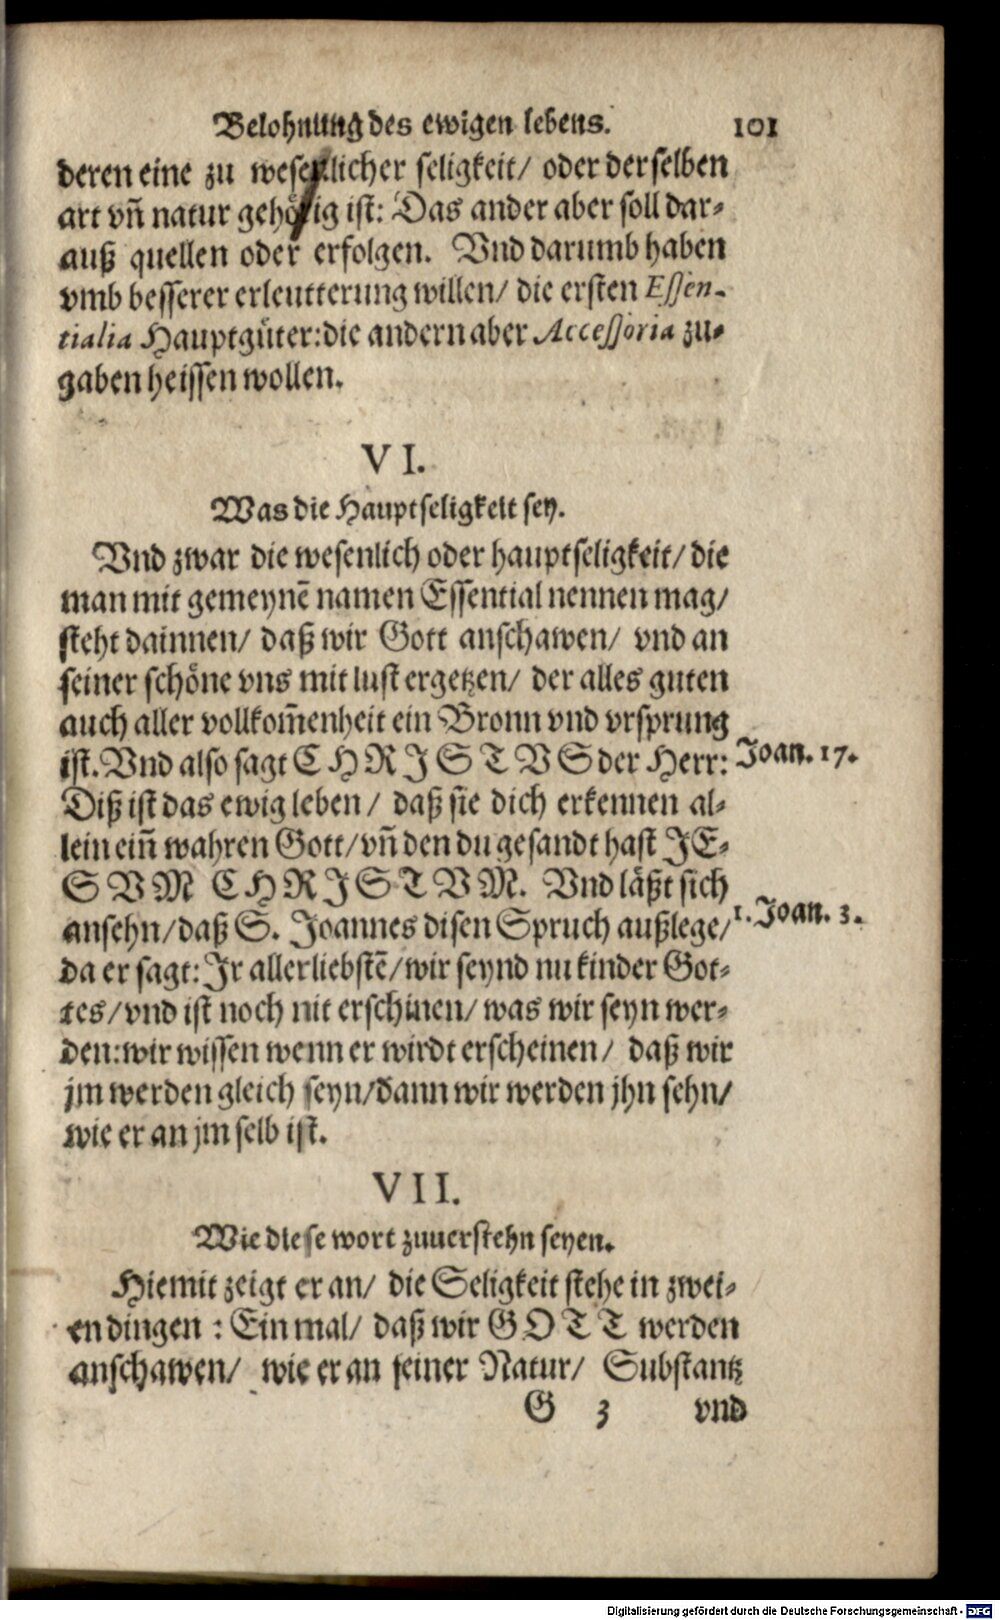 Belohnung des ewigen lebens. 101
deren eine zu wesenlicher seligkeit/ oder derselben
art vñ natur gehörig ist: Das ander aber soll dar-
auß quellen oder erfolgen. Vnd darumb haben
vmb besserer erleutterung willen/ die ersten Essen-
tialia Hauptgüter: die andern aber Accessoria zu-
gaben heissen wollen.
VI.
Was die Hauptseligkeit sey.
Vnd zwar die wesenlich oder hauptseligkeit/ die
man mit gemeynē namen Essential nennen mag/
steht dainnen/ daß wir Gott anschawen/ vnd an
seiner schöne vns mit lust ergetzen/ der alles guten
auch aller vollkom̄enheit ein Bronn vnd vrsprung
ist. Vnd also sagt CHRISTVS der Herr: Joan. 17.
Diß ist das ewig leben/ daß sie dich erkennen al-
lein einñ wahren Gott/ vñ den du gesandt hast JE-
SVM CHRISTVM. Vnd läßt sich
ansehn/ daß S. Joannes disen Spruch außlege/ 1. Joan. 3.
da er sagt: Ir allerliebstē/ wir seynd nu kinder Got-
tes/ vnd ist noch nit erschinen/ was wir seyn wer-
den: wir wissen wenn er wirdt erscheinen/ daß wir
jm werden gleich seyn/ dann wir werden jhn sehn/
wie er an jm selb ist.
VII.
Wie diese wort zuuerstehn seyen.
Hiemit zeigt er an/ die Seligkeit stehe in zwei-
en dingen: Ein mal/ daß wir GOTT werden
anschawen/ wie er an seiner Natur/ Substantz
G 3 vnd
Digitalisierung gefördert durch die Deutsche Forschungsgemeinschaft - DFG